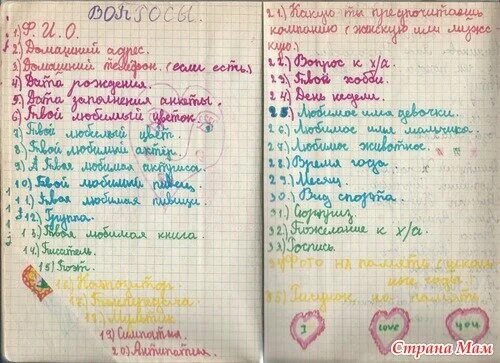 ВОПРОСЫ.
1) Ф. И. О.
2) Домашний адрес.
3) Домашний телефон. (если есть)
4) Дата рождения.
5) Дата заполнения анкеты.
6) Твой любимый цветок.
7) Твой любимый цвет.
8) Твой любимый актёр.
9) А твоя любимая актриса.
10) Твой любимый певец.
11) Твоя любимая певица.
12) Группа.
13) Твоя любимая книга.
14) Писатель.
15) Поэт.
16) Композитор.
17) Телепередача.
18) Мультик
19) Симпатия.
20) Антипатия.
21.) Какую ты предпочитаешь
компанию (женскую или мужск
кую.)
22.) Вопрос к х/а.
23.) Твой хобби.
24.) День недели.
25.) Любимое имя девочки.
26.) Любимое имя мальчика.
27.) Любимое животное.
28.) Время года
29.) Месяц.
30.) Вид спорта.
31.) Сюрприз
32.) Пожелание к х/а.
33.) Роспись.
34) Фото на память (указание
года)
35.) Рисунок на память.
I love you
Страна Мам